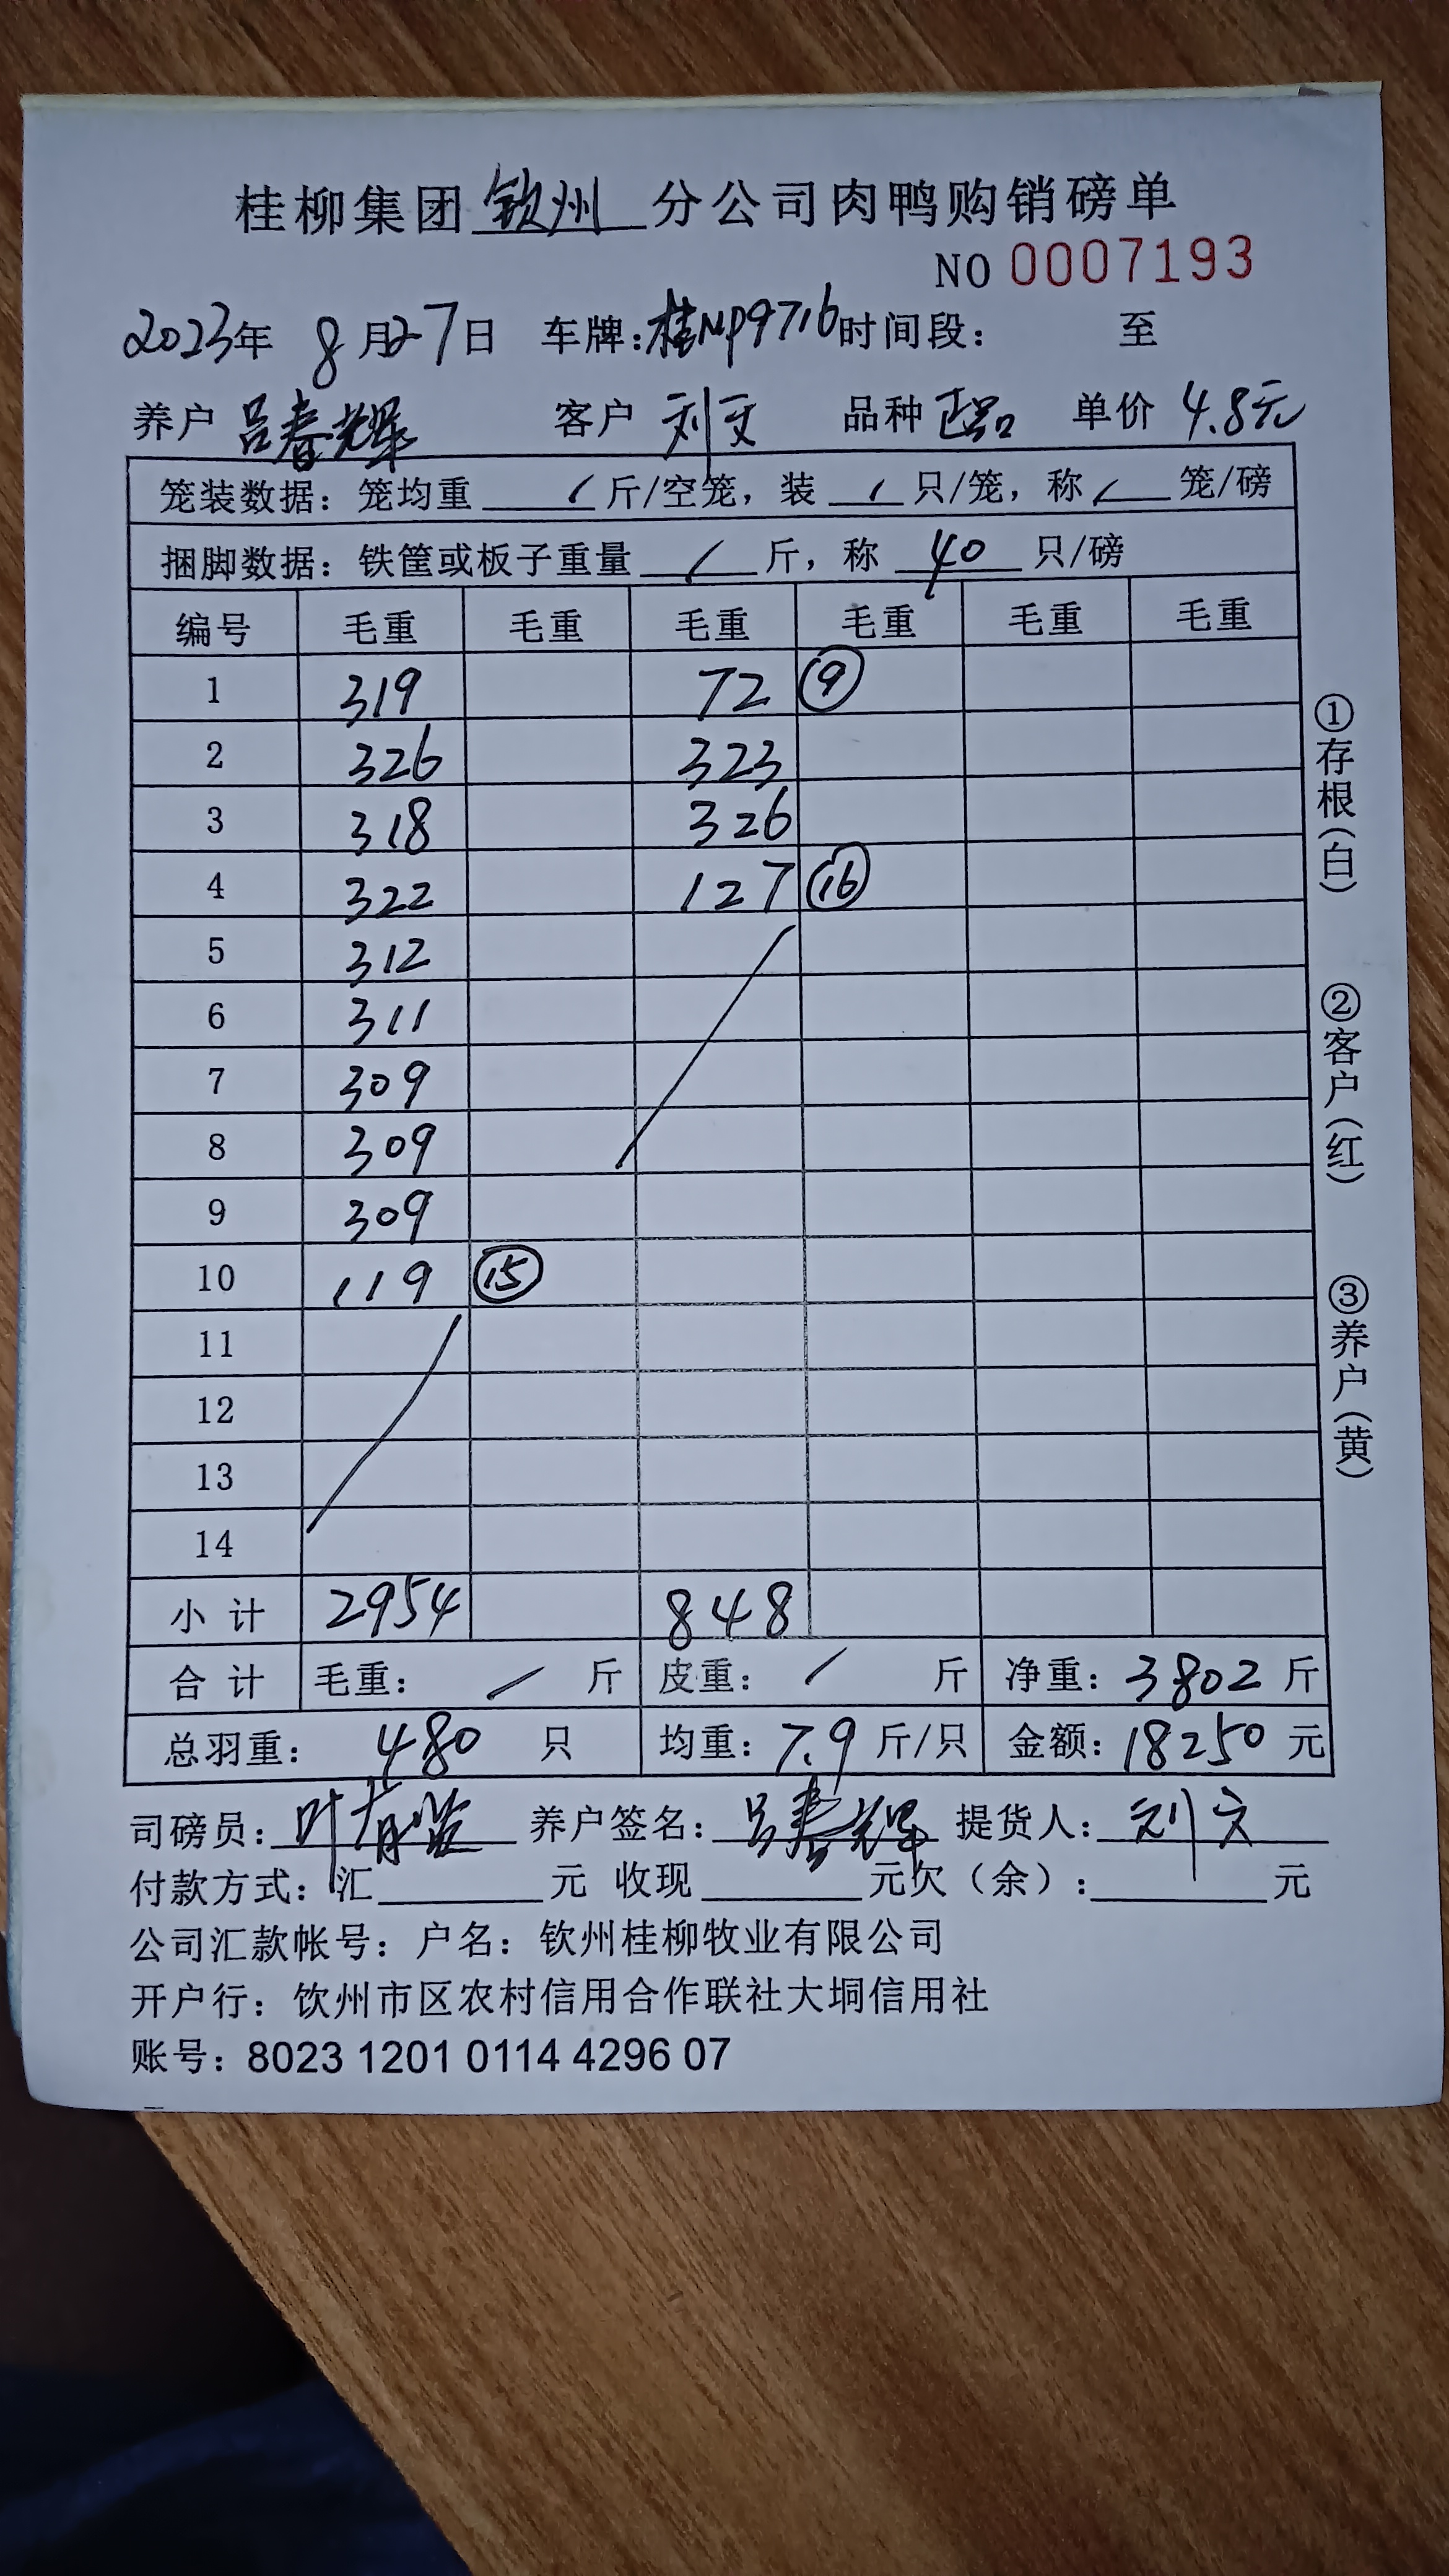 桂柳集团钦州分公司肉鸭购销磅单
NO 0007193
2023年 8月27日 车牌：桂NP9716 时间段： 至
养户 吕春辉 客户 刘文 品种 正品 单价 4.8元
笼装数据：笼均重 / 斤/空笼，装 / 只/笼，称 / 笼/磅
捆脚数据：铁筐或板子重量 / 斤，称 40 只/磅
编号 毛重 毛重 毛重 毛重 毛重 毛重
1 319 72 ⑨
2 326 323
3 318 326
4 322 127 ⑯
5 312
6 311
7 309
8 309
9 309
10 119 ⑮
11
12
13
14
小计 2954 848
合计 毛重： / 斤 皮重： / 斤 净重：3802 斤
总羽重： 480 只 均重：7.9 斤/只 金额：18250 元
司磅员： 养户签名：吕春辉 提货人：刘文
付款方式：汇 元 收现 元欠（余）： 元
公司汇款帐号：户名：钦州桂柳牧业有限公司
开户行：钦州市区农村信用合作联社大垌信用社
账号：8023 1201 0114 4296 07
①存根（白）
②客户（红）
③养户（黄）